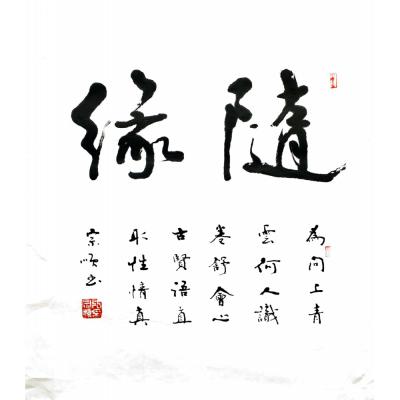 隨緣
為問上青
雲何人識
卷舒會心
古賢語直
彤性情真
宗順书